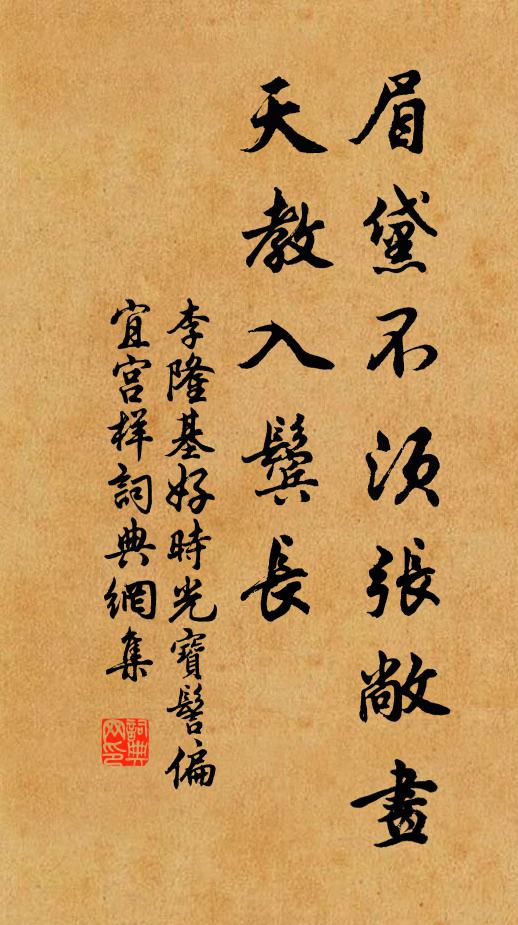 眉黛不須張敞畫
天教入鬢長
李隆基好時光寶髻偏
宜宮样詞典網集
詞典网印